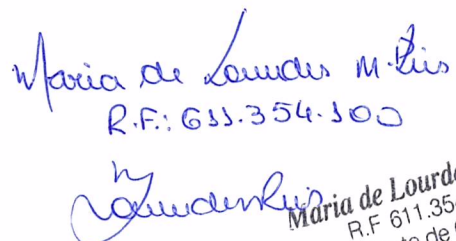 Maria de Lourdes M. Reis
R.F.: 611.354.100
Maria de Lourde
R.F 611.35